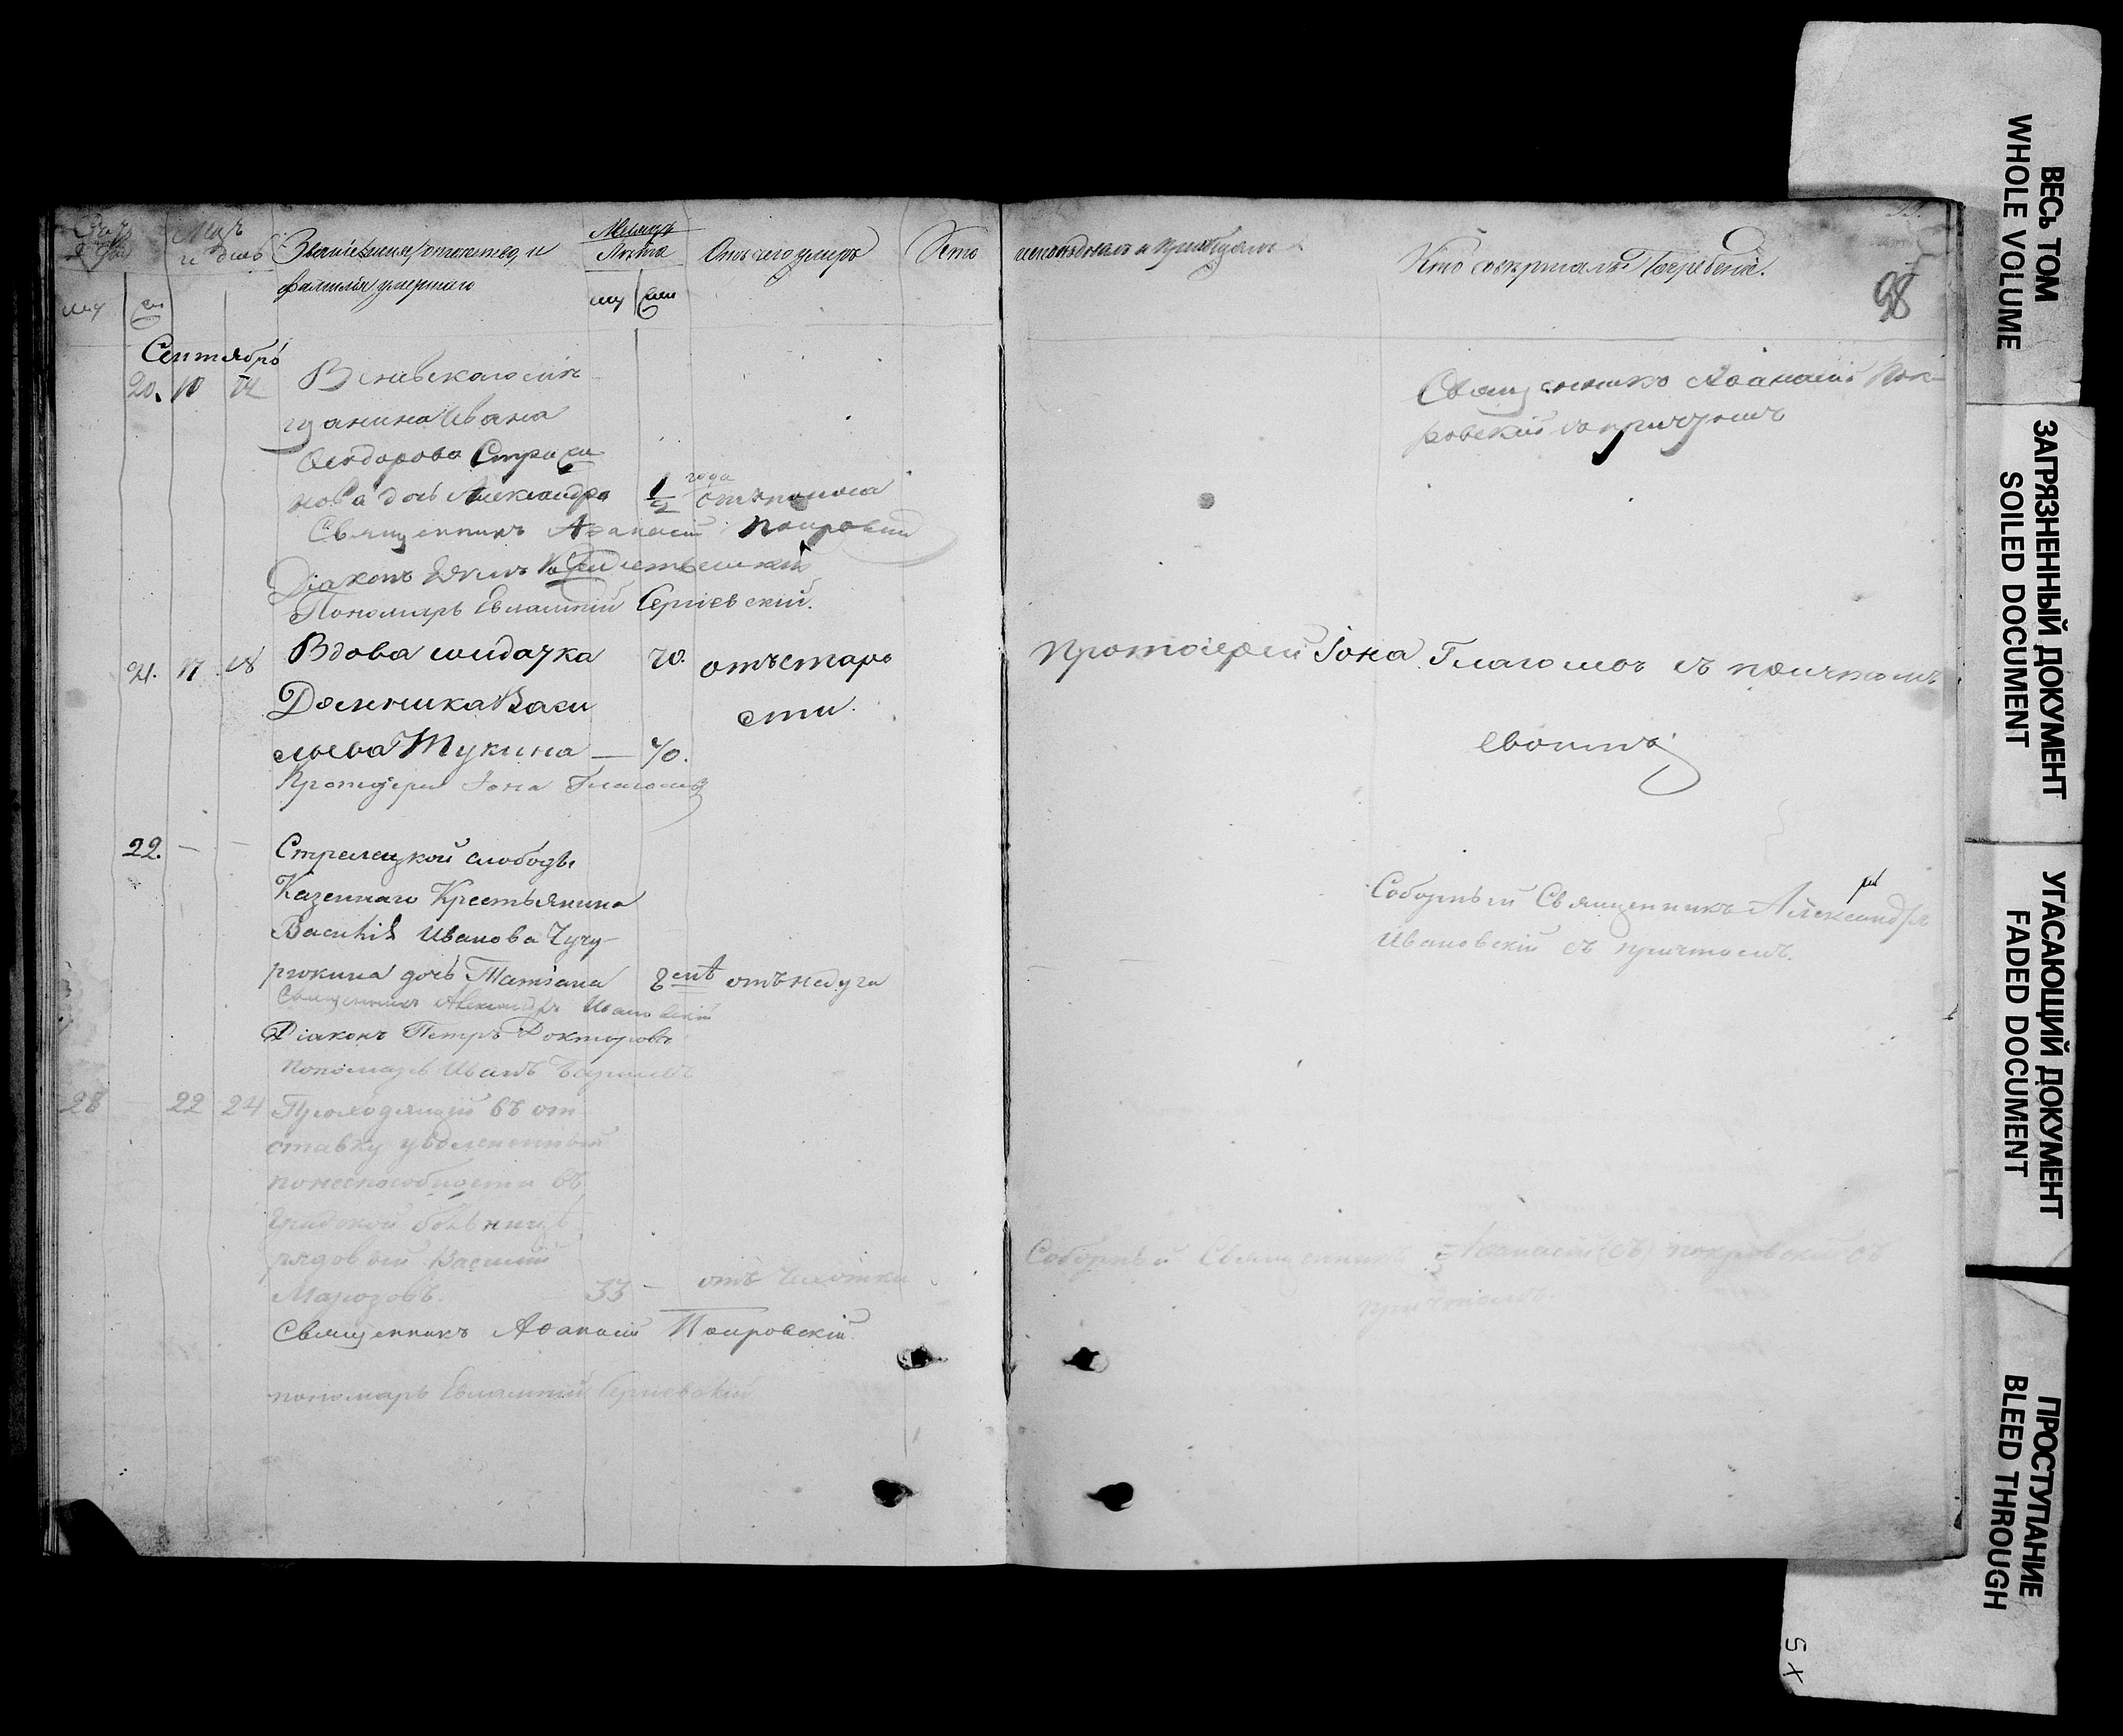 Звание, имя, отчество, и
фамилия умершаго
Лѣта
Отъ чего умеръ
Кто
исповѣдывалъ и приобщалъ
Кто совершалъ Погребеніе.
98
му
Сентябрь
20. 10 12
Веневскаго мѣщанина Ивана
Ѳеодорова
нова дочь Александра 1/2 года отъ поноса
Священникъ Аѳанасій Покровскій
Діаконъ
Пономарь Евлампій Сергіевскій.
Священникъ Аѳанасій Покровскій съ причтомъ
21. 17 18 Вдова солдатка 70. отъ старости.
Домника Васильева Щукина — 70.
Протоіерей Іона Глаголевъ
Протоіерей Іона Глаголевъ съ причтомъ
своимъ
22. — — Стрелецкой слободы
Казеннаго Крестьянина
Василія Иванова Чугу-
рюкина дочь Татіана 8 лѣтъ отъ недуга
Священникъ Александръ Ивановскій
Діаконъ Петръ Докторовъ
Пономарь Иванъ
Соборный Священникъ Александръ
Ивановскій съ причтомъ.
28 22 24 Проходящій въ от
ставку уволенный
по неспособности въ
градской больницѣ
рядовой Василій
Марозовъ. 33 — отъ чахотки
Священникъ Аѳанасій Покровскій
пономарь Евлампій Сергіевскій
Соборный Священникъ Аѳанасій Покровскій съ
причтомъ.
ВЕСЬ ТОМ
WHOLE VOLUME
ЗАГРЯЗНЕННЫЙ ДОКУМЕНТ
SOILED DOCUMENT
УГАСАЮЩИЙ ДОКУМЕНТ
FADED DOCUMENT
ПРОСТУПАНИЕ
BLED THROUGH
5X